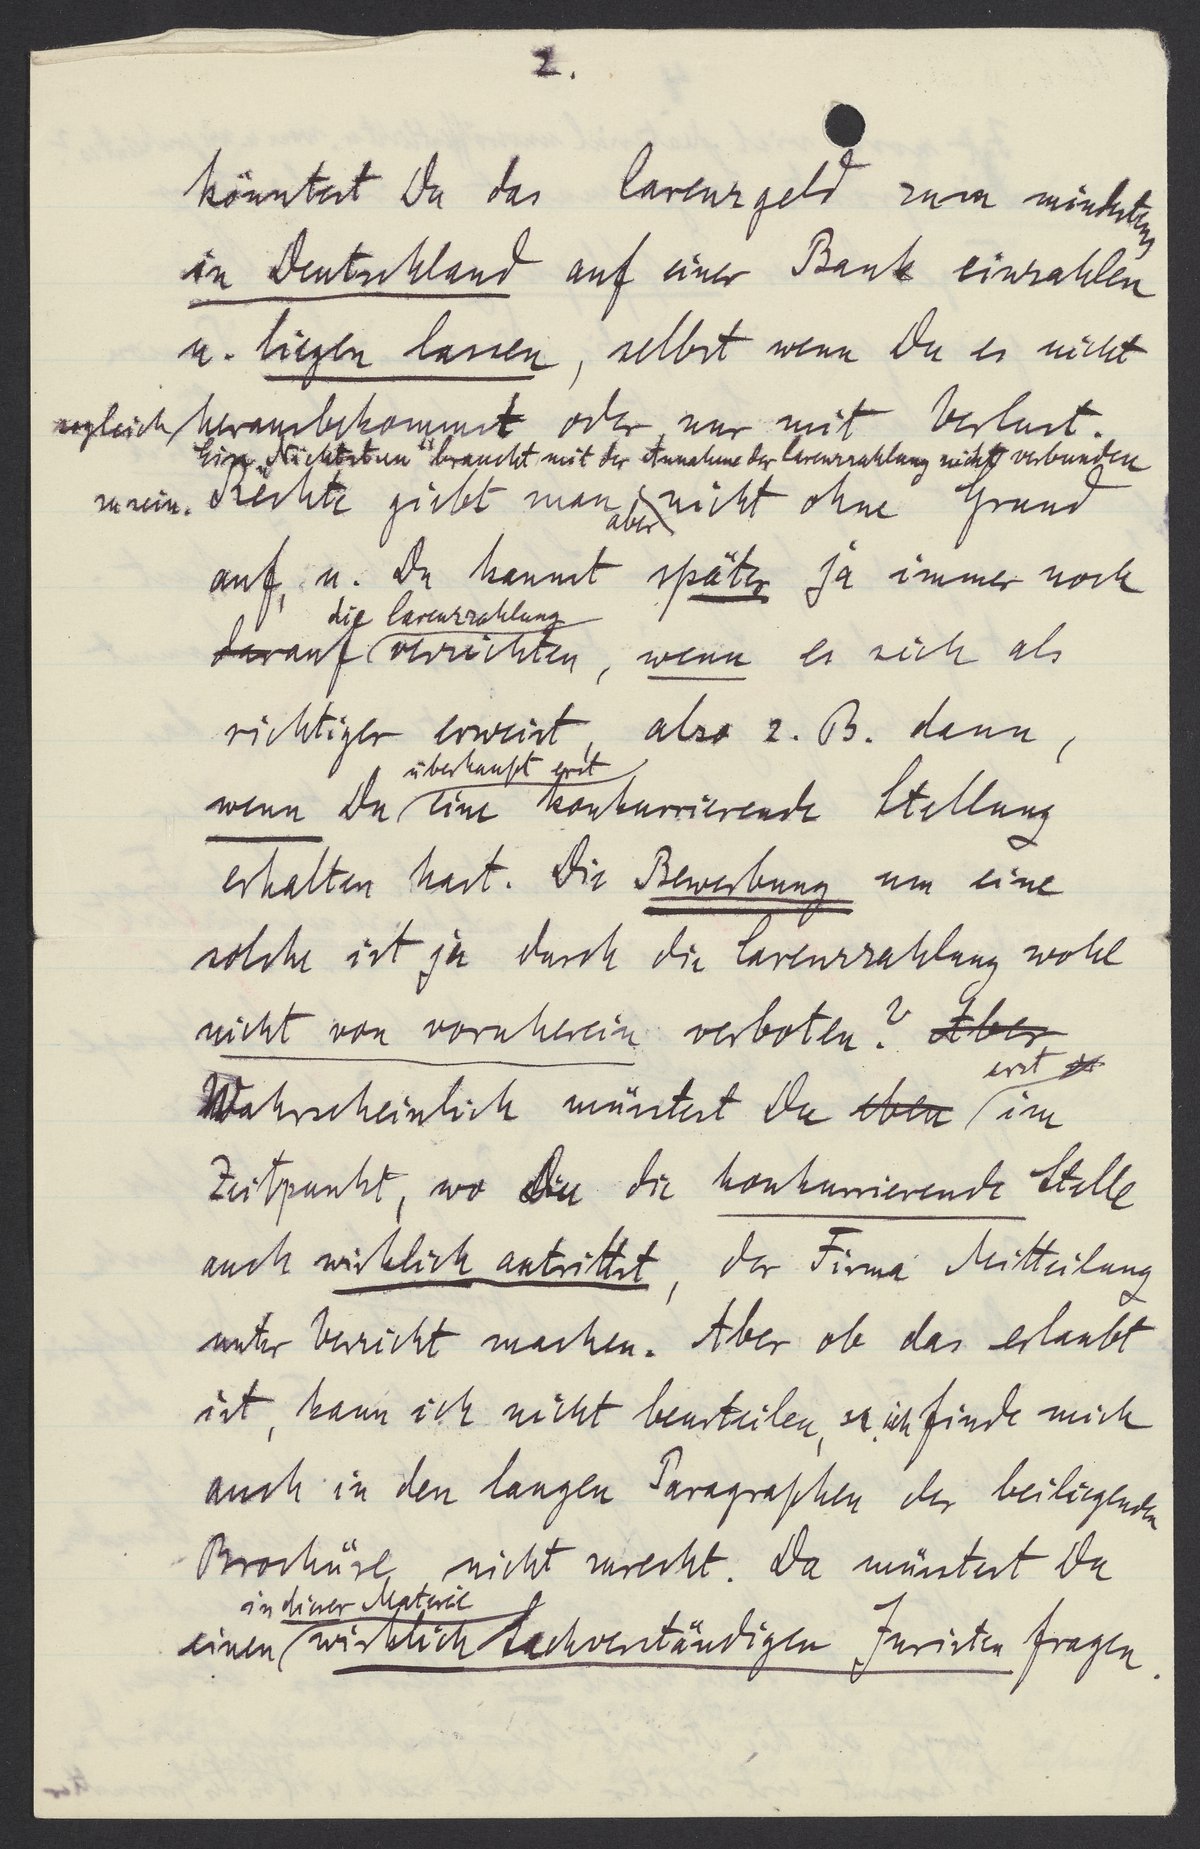 2.
könntest Du das Carenzgeld zum mindestens
in Deutschland auf einer Bank einzahlen
u. liegen lassen, selbst wenn Du es nicht
sogleich herausbekommst oder nur mit Verlust.
Ein „Nichtstun" braucht mit der Annahme der Carenzzahlung nicht verbunden
zu sein. Rechte giebt man aber nicht ohne Grund
auf, u. Du kannst später ja immer noch
die Carenzzahlung
darauf verzichten, wenn es sich als
richtiger erweist, also z. B. dann,
überhaupt erst
wenn Du eine konkurrierende Stellung
erhalten hast. Die Bewerbung um eine
solche ist ja durch die Carenzzahlung wohl
nicht von vornherein verboten? Aber
erst
Wahrscheinlich müsstest Du eben im
Zeitpunkt, wo Du die konkurrierende Stelle
auch wirklich antrittst, der Firma Mitteilung
unter Verzicht machen. Aber ob das erlaubt
ist, kann ich nicht beurteilen, ich finde mich
auch in den langen Paragraphen der beiliegenden
Broschüre nicht zurecht. Da müsstest Du
in dieser Materie
einen wirklich Sachverständigen Juristen fragen.